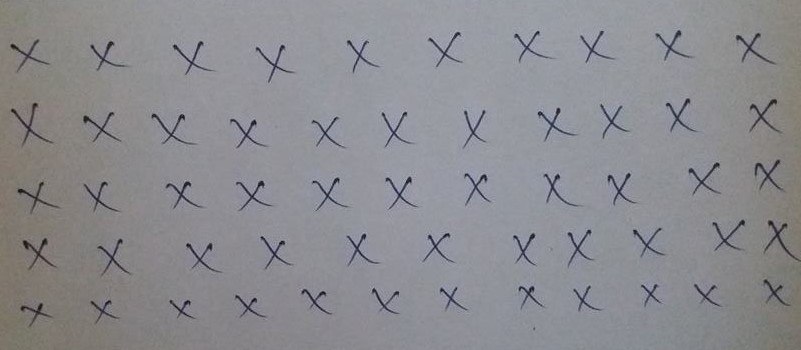 x x x x x x x x x x
x x x x x x x x x x x
x x x x x x x x x x x
x x x x x x x x x x x
x x x x x x x x x x x x